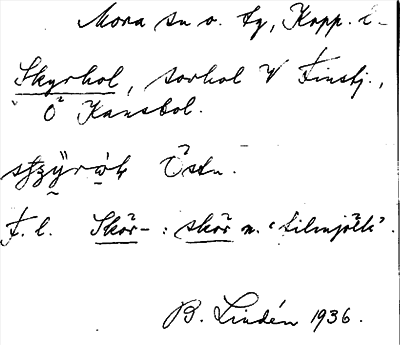 Mora sn o. tg, Kopp. l-
Skyrhol, torhol V Finsbj.,
Ö Kansbol.
Östn.
F. l. Skör- : skör n. 'filmjölk'.
B. Lindén 1936.